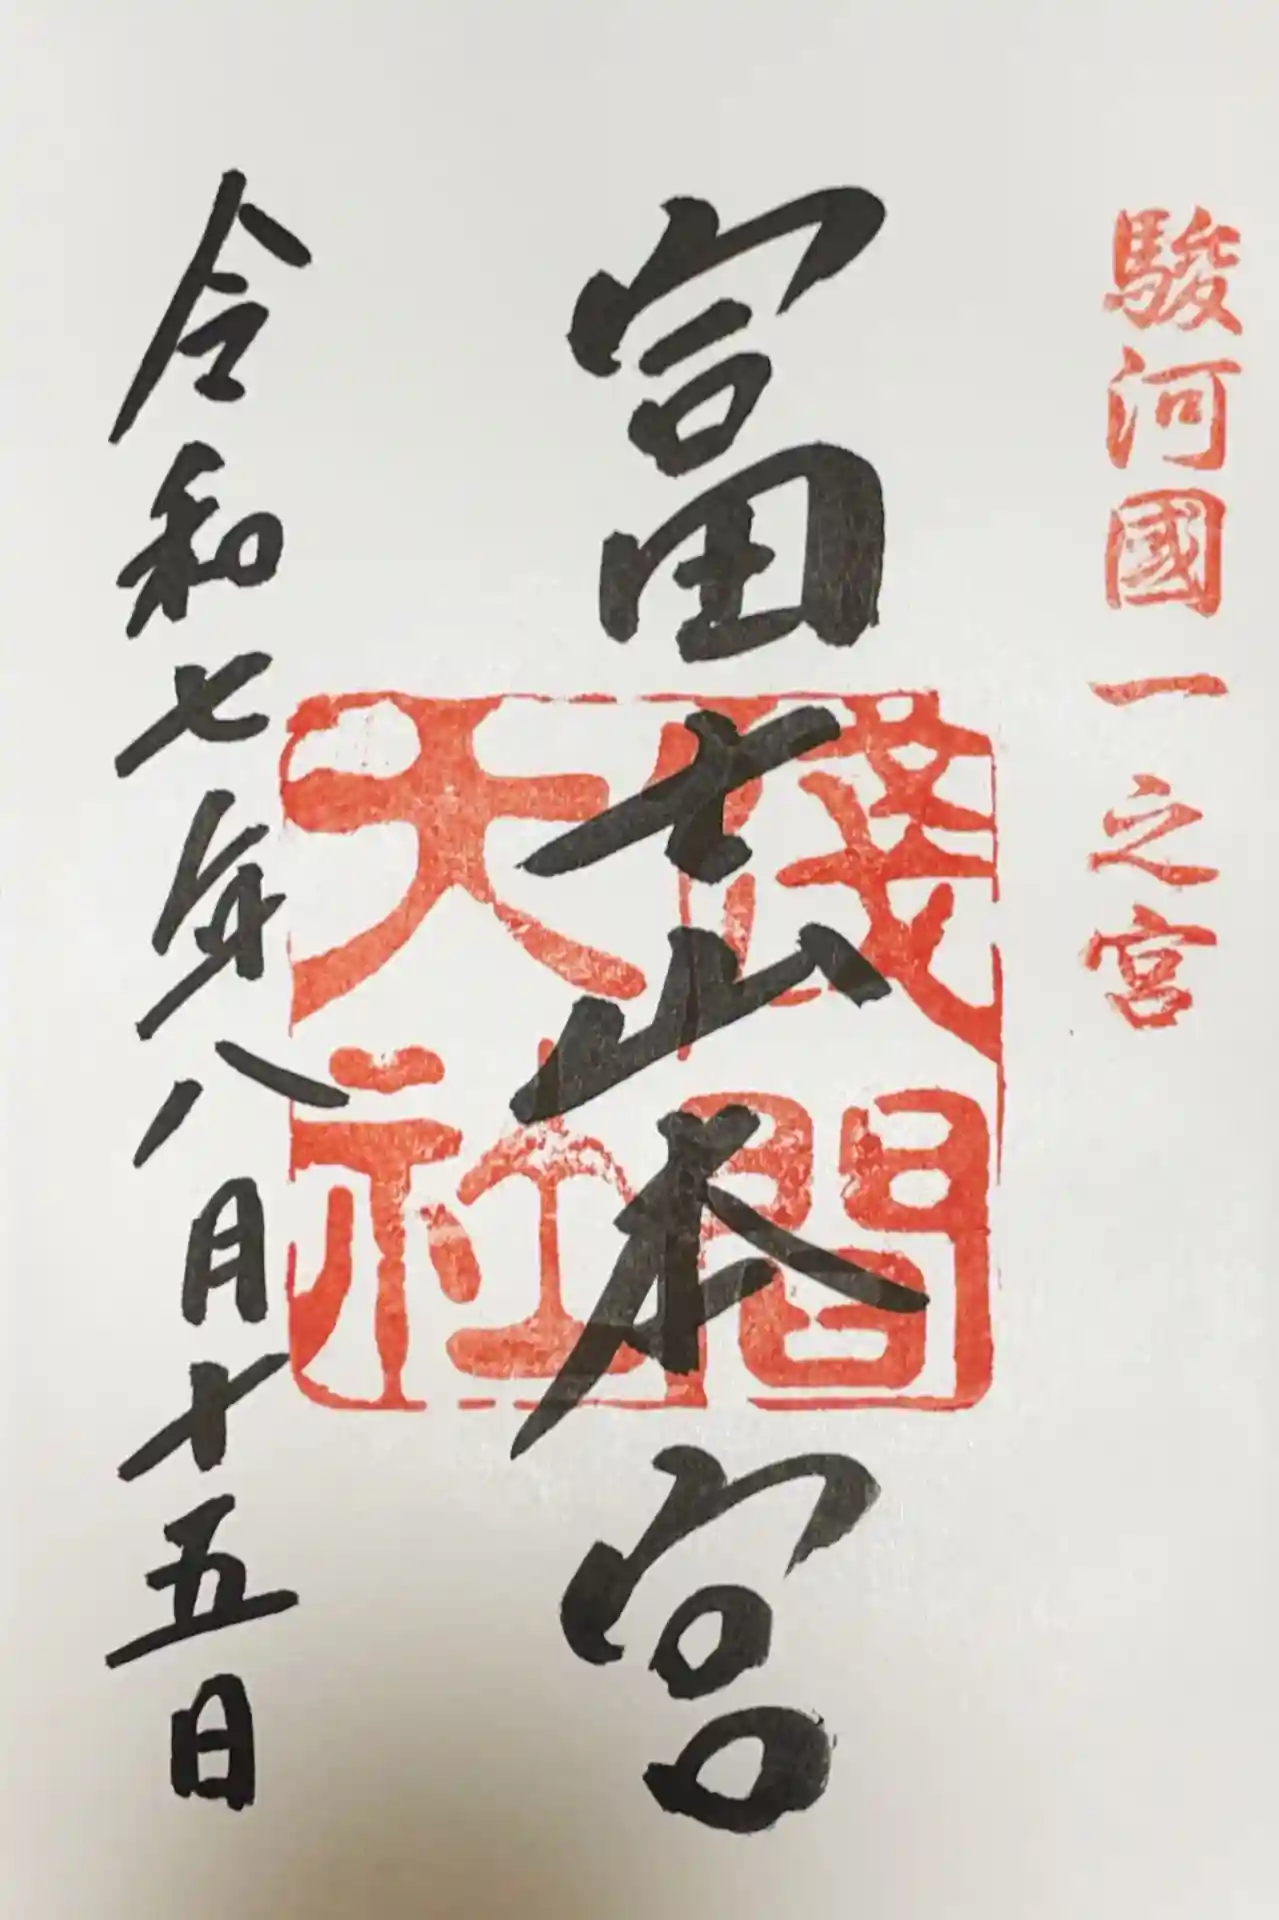 駿河國一之宮
富士山本宮
淺間
大社
令和七年八月十五日